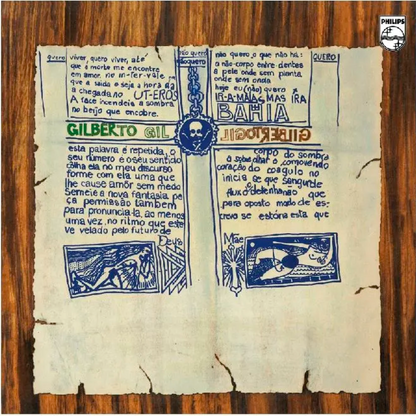 PHILIPS
quero
viver, quero viver, até
que a morte me encontre
em amor, no in-fer-vale
que a saida e seja a hora da
a chegada no UT-EROS
A face incendeia a sombra
no beijo que encobre.
não quero
quero
não quero o que não há:
o não-corpo entre dentes
a pele onde sem planta
onde sem onda
hoje eu (não) quero
IR-A-MAIAS MAS IRA
BAHIA
QUERO
GILBERTO GIL
GILBERTO GIL
esta palavra é repetida, o
seu número é o seu sentido
colha ela no meu discurso
forme com ela uma que
lhe cause amôr sem medo
Semeie a nova fantasia pe
ça permissão tambem
para pronuncia-la, ao menos
uma vez, no ritmo que este
ve velado pelo futuro de
Deus
corpo da sombra
o sobresaltar o, comovendo
coração do coagulo no
inicio se que sangur de
fluxo
para oposto modo de es-
crevo se estória esta que
Mãe